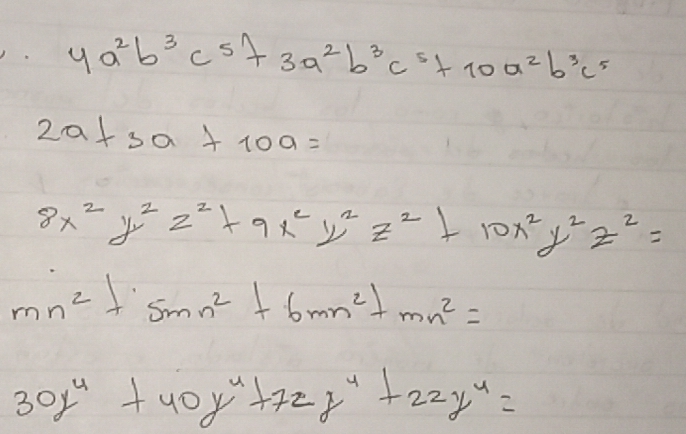 . 4a²b³c⁵ + 3a²b³c⁵ + 10a²b³c⁵
2a + 3a + 10a =
8x² y² z² + 9x² y² z² + 10x² y² z² =
mn² + 5mn² + 6mn² + mn² =
30y⁴ + 40y⁴ + 72y⁴ + 22y⁴ =